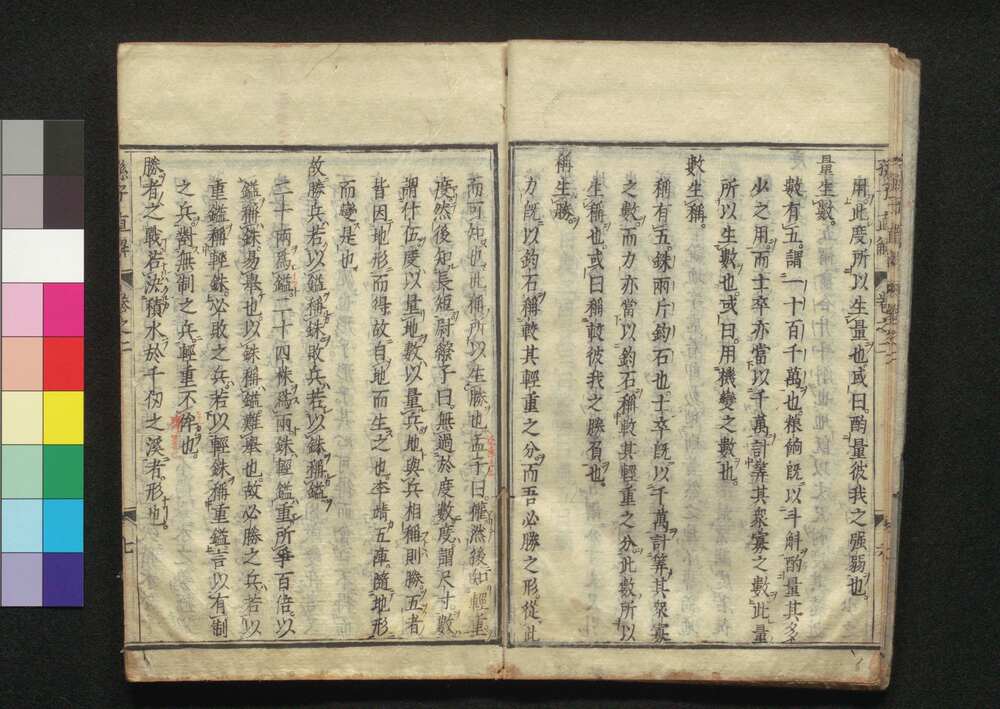 用此度所以生量也或曰酌量彼我之强弱也
量生數
數有五謂一十百千萬也粮餉旣以斗斛酌量其多
少之用而士卒亦當以千萬計筭其衆寡之數此量
所以生數也或曰用機變之數也
數生稱
稱有五銖兩斤鈞石也士卒旣以千萬計筭其衆寡
之數而力亦當以鈞石稱較其輕重之分此數所以
生稱也或曰稱較彼我之勝負也
稱生勝
力旣以鈞石稱較其輕重之分而吾必勝之形從此
而可知也此稱所以生勝也孟子曰權然後知輕重
度然後知長短尉繚子曰無過於度數度謂尺寸數
謂什伍度以量地數以量兵地與兵相稱則勝五者
皆因地形而得故自地而生之也李靖五陣隨地形
而變是也
故勝兵若以鎰稱銖敗兵若以銖稱鎰
二十兩爲鎰二十四銖爲兩銖輕鎰重所爭百倍以
鎰稱銖易舉也以銖稱鎰難舉也故必勝之兵若以
重鎰稱輕銖必敗之兵若以輕銖稱重鎰言以有制
之兵對無制之兵輕重不侔也
勝者之戰若決積水於千仞之溪者形也
孫子直解 卷之二
七